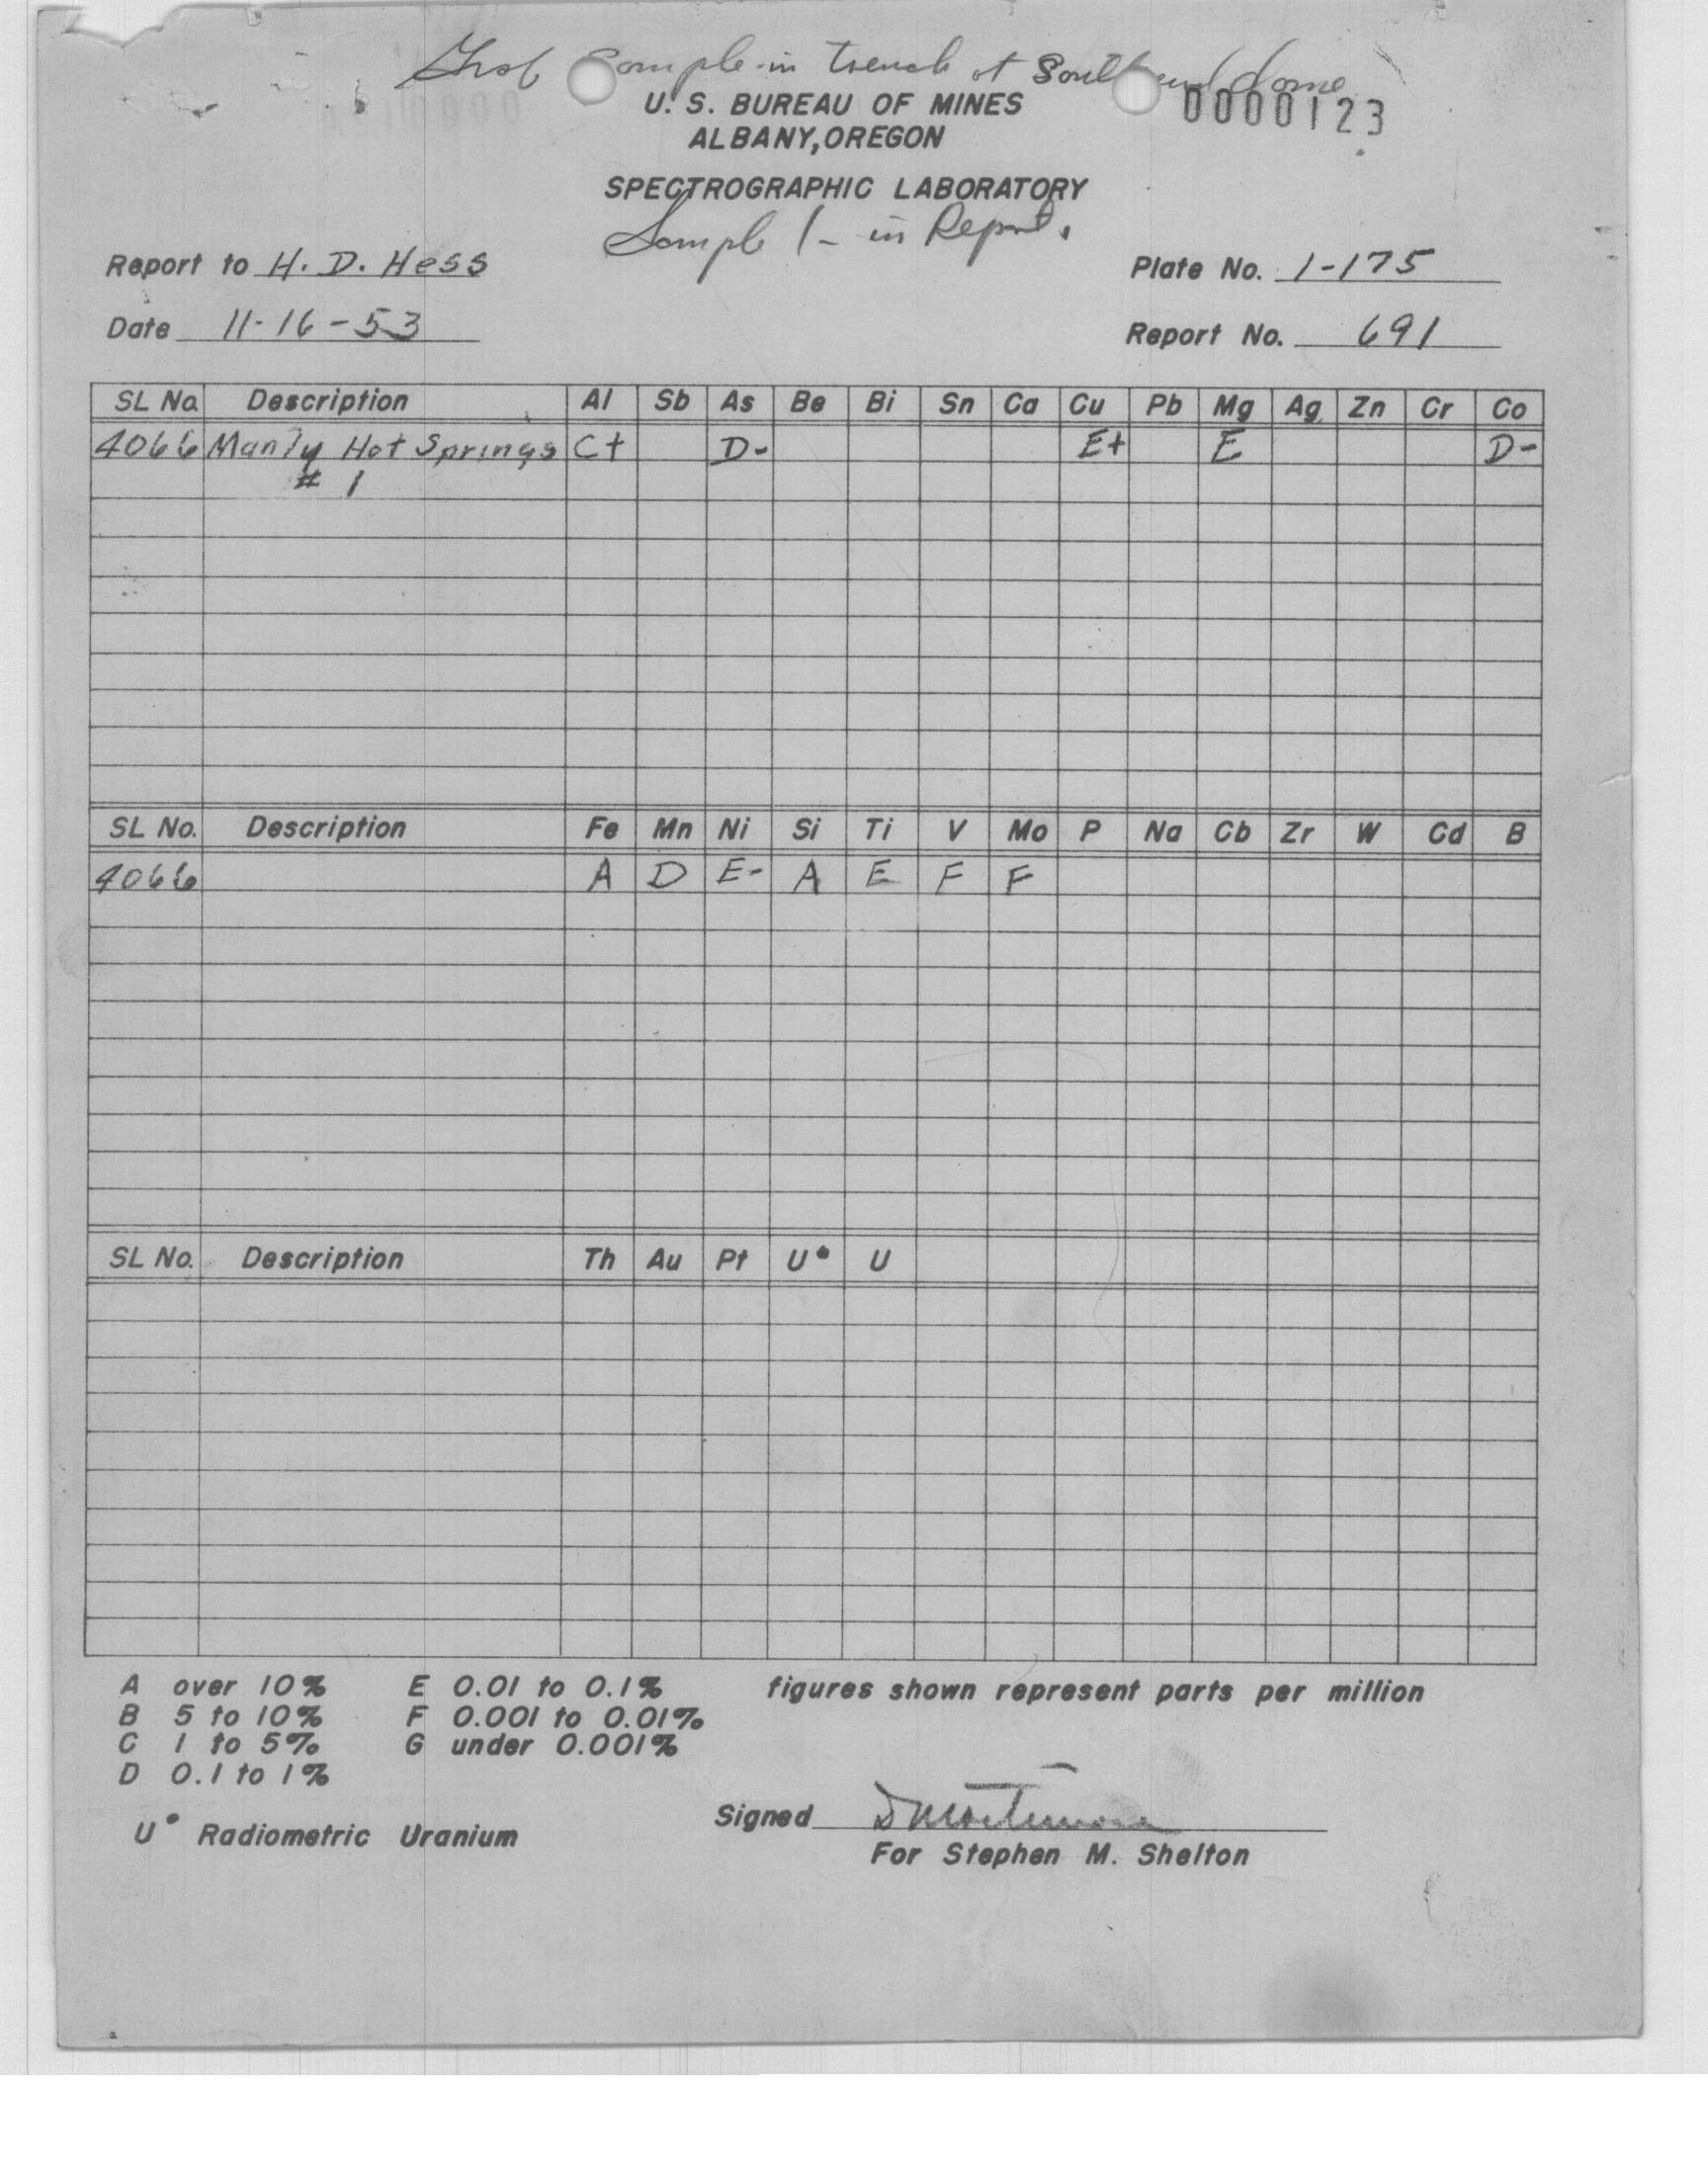 Grab Sample in trench at South end dome
U. S. BUREAU OF MINES
0000123
ALBANY, OREGON
SPECTROGRAPHIC LABORATORY
Sample 1 - in Report.
Report to H. D. Hess
Plate No. 1-175
Date 11-16-53
Report No. 691
SL No. Description Al Sb As Be Bi Sn Ca Cu Pb Mg Ag Zn Cr Co
4066 Manly Hot Springs C+ D- E+ E D-
# 1
SL No. Description Fe Mn Ni Si Ti V Mo P Na Cb Zr W Cd B
4066 A D E- A E F F
SL No. Description Th Au Pt U* U
A over 10% E 0.01 to 0.1% figures shown represent parts per million
B 5 to 10% F 0.001 to 0.01%
C 1 to 5% G under 0.001%
D 0.1 to 1%
U* Radiometric Uranium
Signed
For Stephen M. Shelton